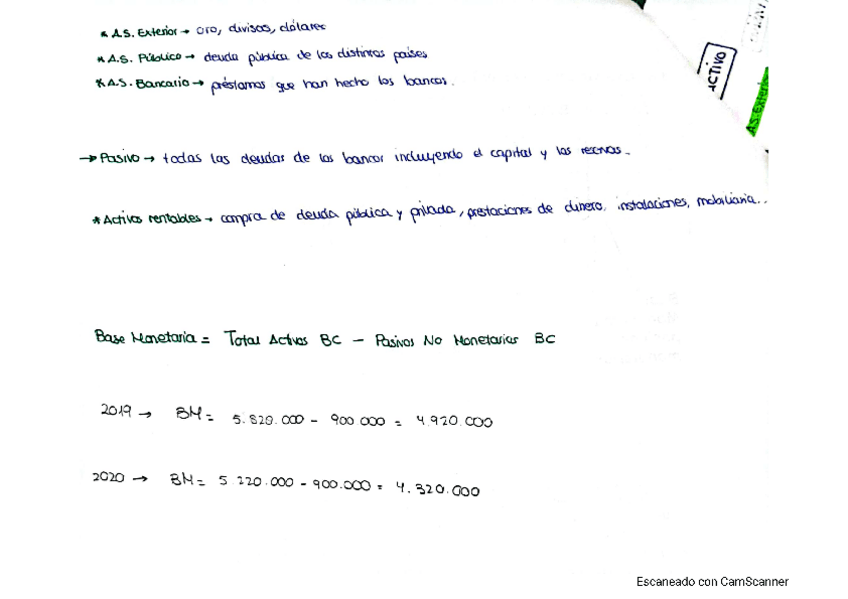 * A.S. Exterior → oro, divisas, dólares
* A.S. Público → deuda pública de los distintos países
* A.S. Bancario → préstamos que han hecho los bancos.
ACTIVO
AS. Exterior
→ Pasivo → todas las deudas de los bancos incluyendo el capital y las reservas.
* Activos rentables → compra de deuda pública y privada, prestaciones de dinero, instalaciones, mobiliaria..
Base Monetaria = Total Activos BC - Pasivos No Monetarios BC
2019 → BM = 5.820.000 - 900.000 = 4.920.000
2020 → BM = 5.220.000 - 900.000 = 4.320.000
Escaneado con CamScanner